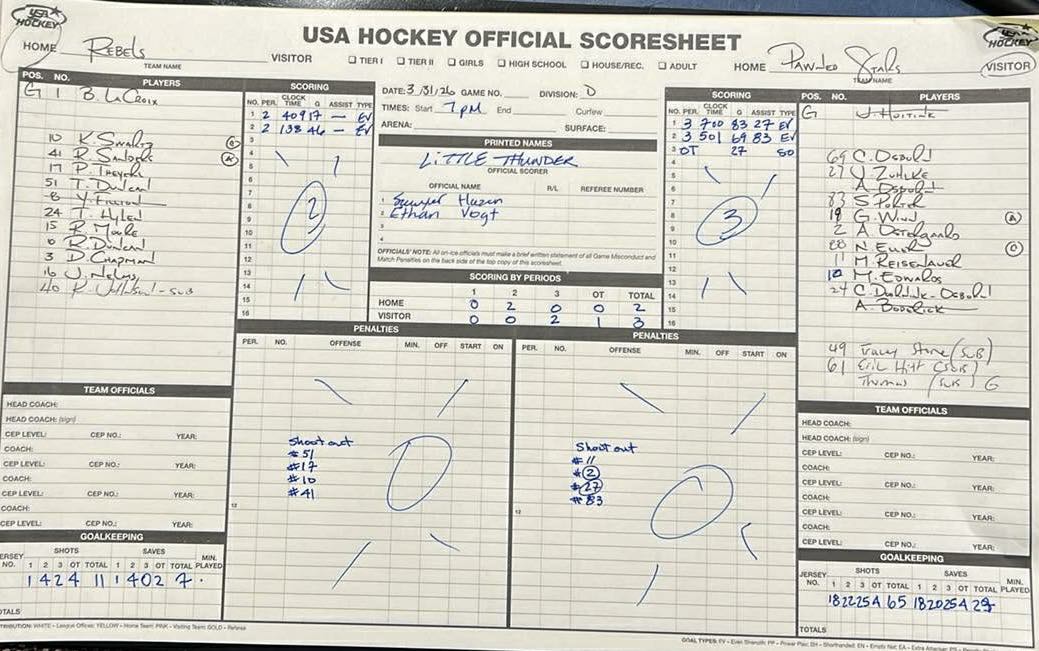 USA HOCKEY
USA HOCKEY OFFICIAL SCORESHEET
USA HOCKEY
HOME Rebels VISITOR
TEAM NAME
☐ TIER I ☐ TIER II ☐ GIRLS ☐ HIGH SCHOOL ☐ HOUSE/REC. ☐ ADULT
HOME Pawned Stars VISITOR
TEAM NAME
POS. NO. PLAYERS
G 1 B. LaCroix
10 K. Swartz C
41 R. Sanders A
17 P.
51 T. Duncan
8
24 T. Hylen
15 R.
6 R. Duncan
3 D. Chapman
16 J. Nelms
40 K. - SUB
SCORING
NO. PER. CLOCK TIME G ASSIST TYPE
1 2 409 17 — EV
2 2 138 46 — EV
3
4
5
6
7
8
9
10
11
12
13
14
15
16
2
DATE: 3/31/26 GAME NO. DIVISION: D
TIMES: Start 7pm End Curfew
ARENA: SURFACE:
PRINTED NAMES
Little Thunder
OFFICIAL SCORER
OFFICIAL NAME R/L REFEREE NUMBER
1 Sawyer Hazen
2 Ethan Vogt
3
4
OFFICIALS' NOTE: All on-ice officials must make a brief written statement of all Game Misconduct and
Match Penalties on the back side of the top copy of this scoresheet.
SCORING BY PERIODS
1 2 3 OT TOTAL
HOME 0 2 0 0 2
VISITOR 0 0 2 1 3
SCORING
NO. PER. CLOCK TIME G ASSIST TYPE
1 3 700 83 27 EV
2 3 501 69 83 EV
3 OT 27 SO
4
5
6
7
8
9
10
11
12
13
14
15
16
3
POS. NO. PLAYERS
G J. Huitink
69 C. Osborn
27 J. Zuhlke
A. Osborn
83 S Porter
19 G. Wind A
2 A
88 N. C
11 M. Reisenauer
10 M. Edwards
24 C.
A. Boderick
49 Tracey Stone (SUB)
61 Eric Hitt (SUB)
Thomas (SUB) G
PENALTIES
PER. NO. OFFENSE MIN. OFF START ON
Shoot out
#51
#17
#10
#41
0
12
PENALTIES
PER. NO. OFFENSE MIN. OFF START ON
Shoot out
#11
#2
#27
#83
0
12
TEAM OFFICIALS
HEAD COACH:
HEAD COACH: (sign)
CEP LEVEL: CEP NO.: YEAR:
COACH:
CEP LEVEL: CEP NO.: YEAR:
COACH:
CEP LEVEL: CEP NO.: YEAR:
COACH:
CEP LEVEL: CEP NO.: YEAR:
GOALKEEPING
JERSEY NO. SHOTS SAVES MIN. PLAYED
1 2 3 OT TOTAL 1 2 3 OT TOTAL
1 4 2 4 11 1 4 0 2 7
TOTALS
TEAM OFFICIALS
HEAD COACH:
HEAD COACH: (sign)
CEP LEVEL: CEP NO.: YEAR:
COACH:
CEP LEVEL: CEP NO.: YEAR:
COACH:
CEP LEVEL: CEP NO.: YEAR:
COACH:
CEP LEVEL: CEP NO.: YEAR:
GOALKEEPING
JERSEY NO. SHOTS SAVES MIN. PLAYED
1 2 3 OT TOTAL 1 2 3 OT TOTAL
18 22 25 4 65 18 20 25 4
TOTALS
DISTRIBUTION: WHITE - League Offices; YELLOW - Home Team; PINK - Visiting Team; GOLD - Referee
GOAL TYPES: EV - Even Strength; PP - Power Play; SH - Shorthanded; EN - Empty Net; EA - Extra Attacker;